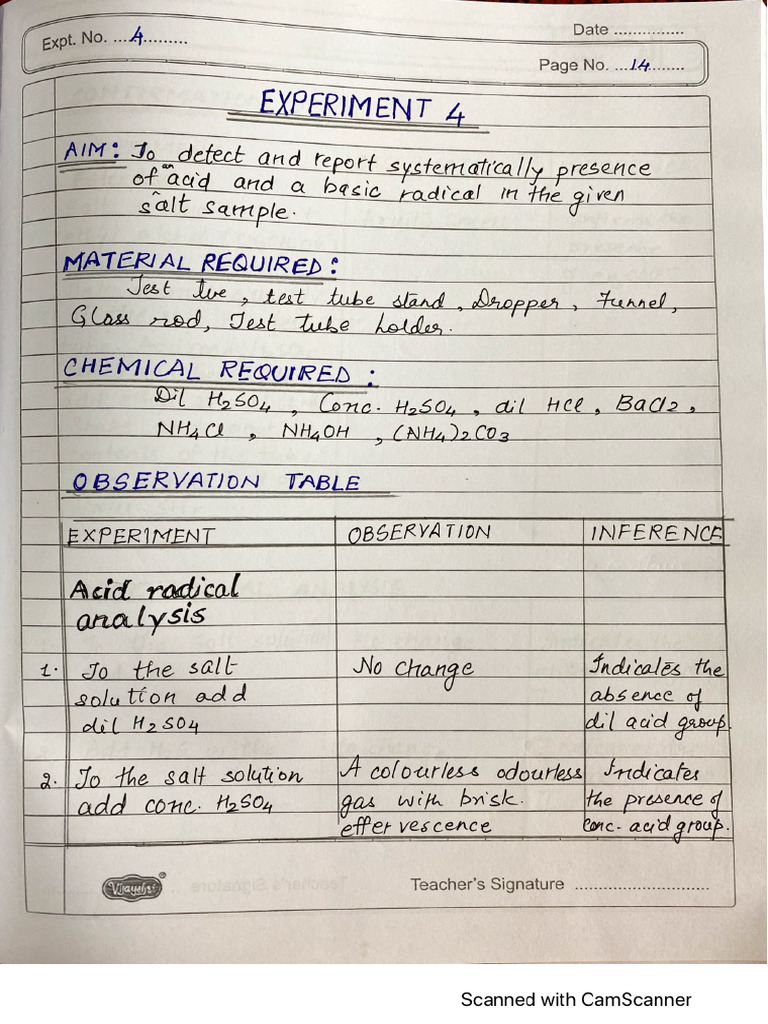 Expt. No. ...4.........
Date ...............
Page No. ...14........
EXPERIMENT 4
AIM: To detect and report systematically presence
of an acid and a basic radical in the given
salt sample.
MATERIAL REQUIRED:
Test tve, test tube stand, Dropper, Funnel,
Glass rod, Test tube holder.
CHEMICAL REQUIRED:
Dil H2SO4, Conc. H2SO4, dil HCl, BaCl2,
NH4Cl, NH4OH, (NH4)2CO3
OBSERVATION TABLE
EXPERIMENT OBSERVATION INFERENCE
Acid radical
analysis
1. To the salt No change Indicates the
solution add absence of
dil H2SO4 dil acid group.
2. To the salt solution A colourless odourless Indicates
add conc. H2SO4 gas with brisk. the presence of
effervescence conc. acid group.
Vijayehst®
Teacher's Signature .............................
Scanned with CamScanner